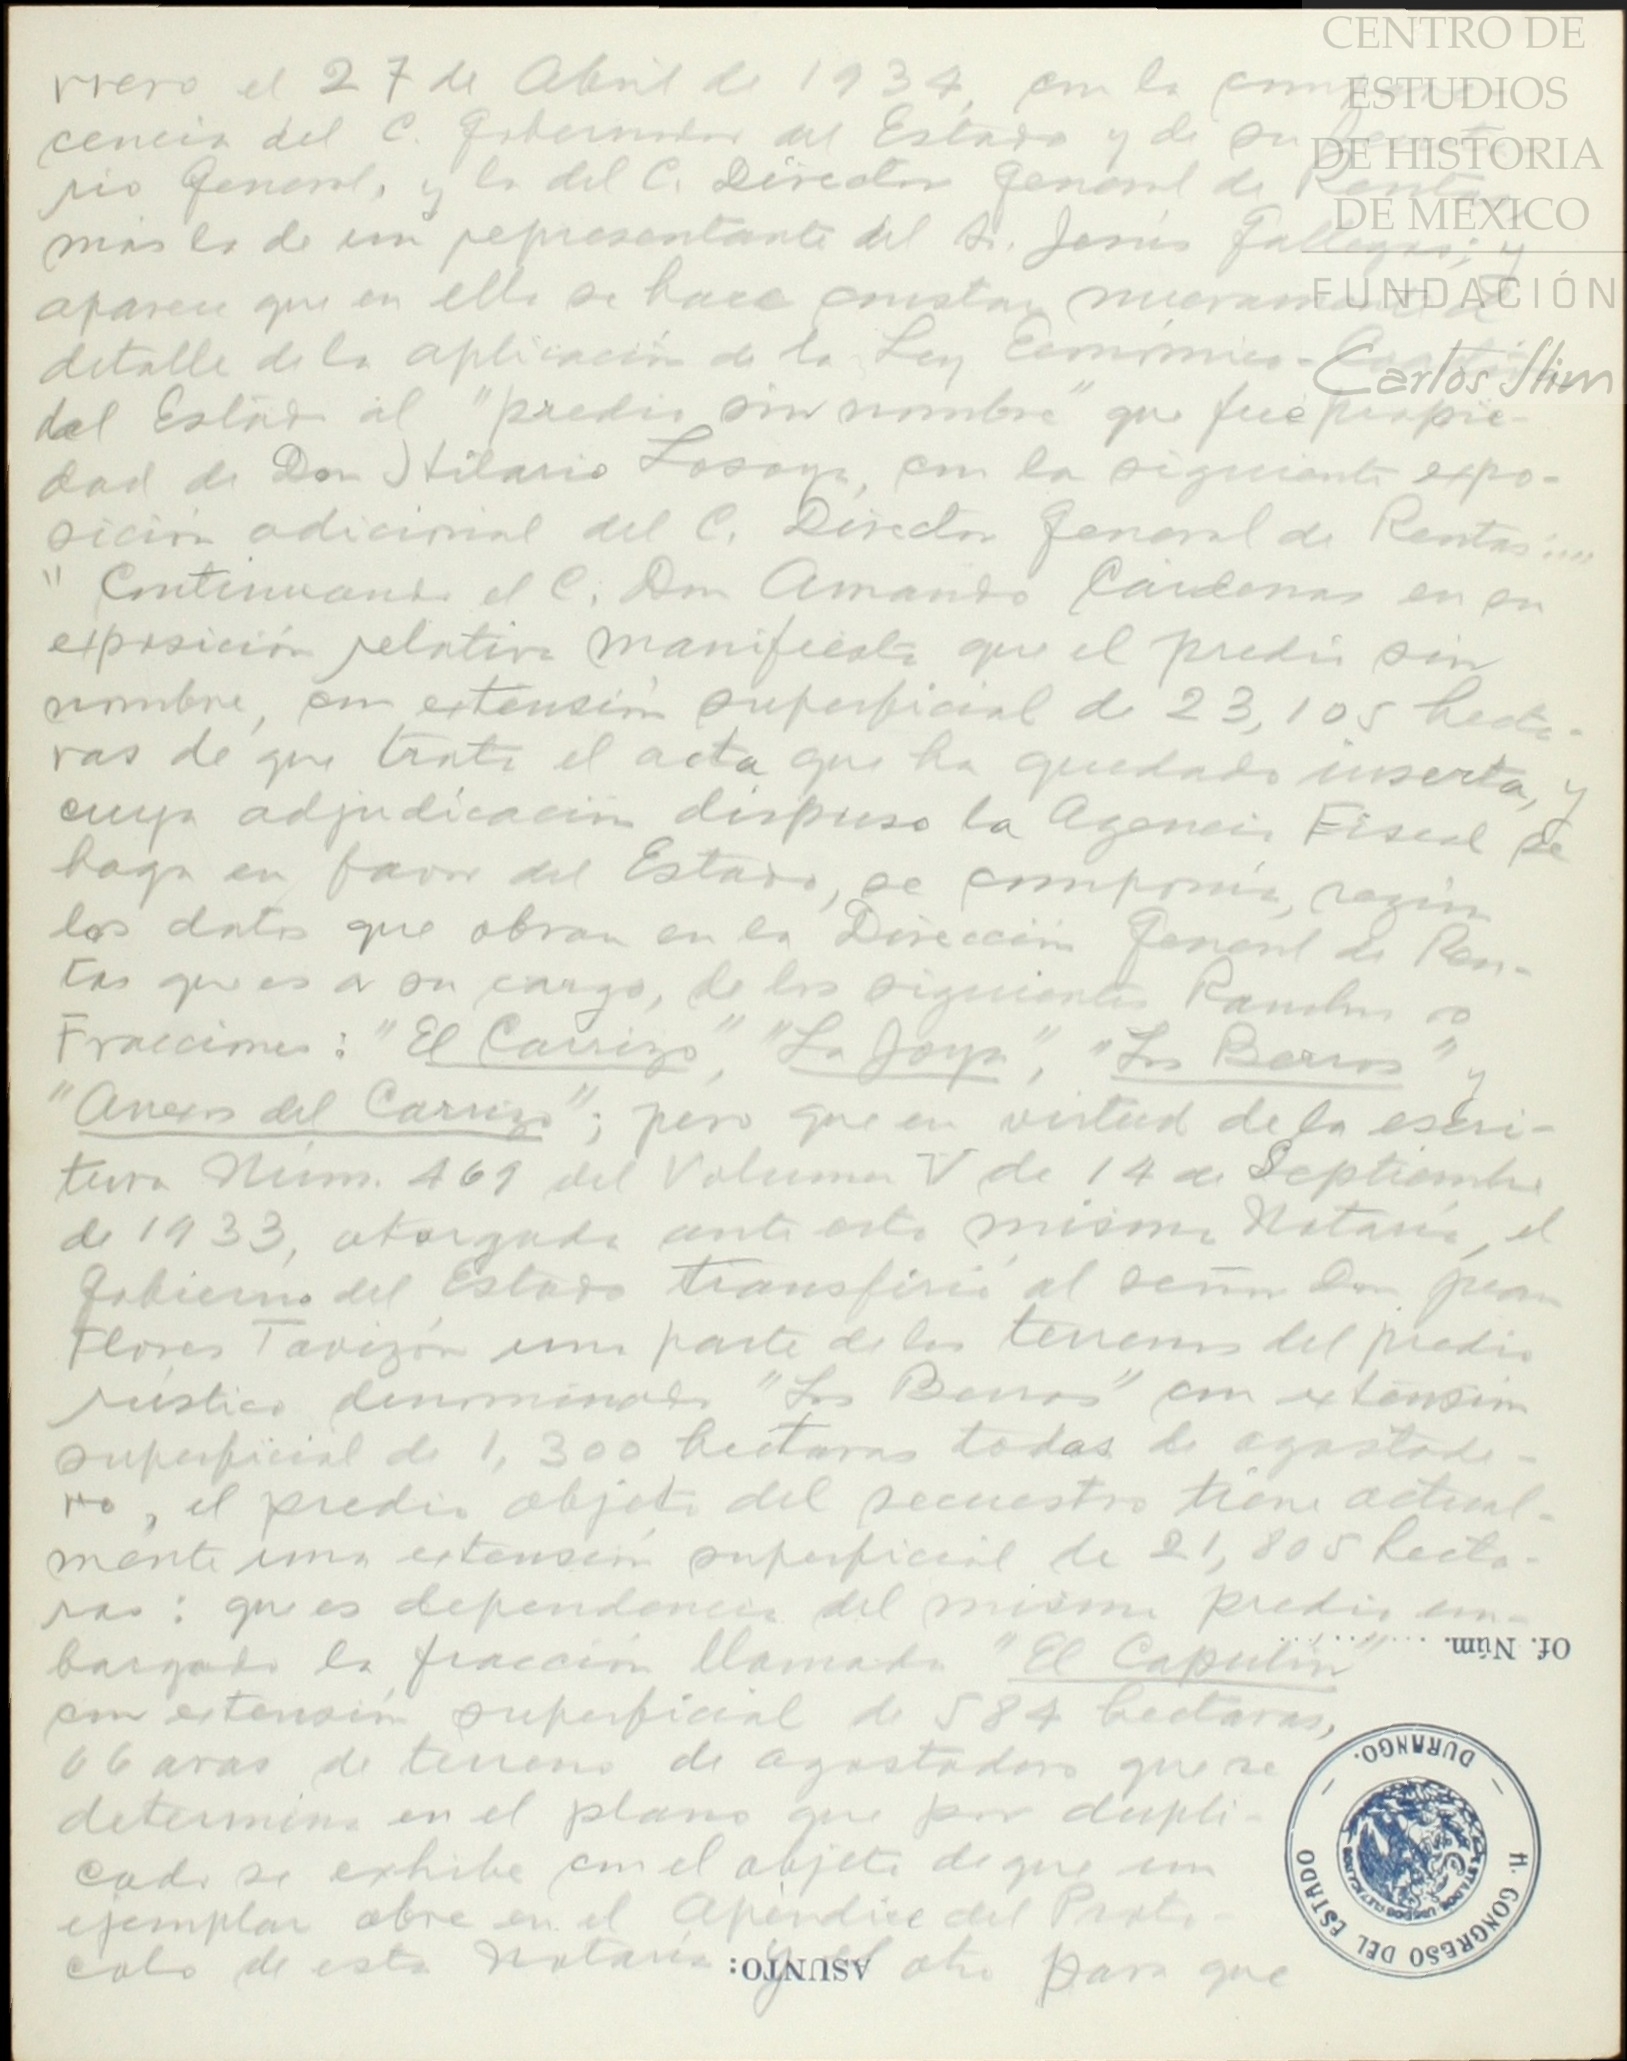 CENTRO DE
ESTUDIOS
DE HISTORIA
DE MEXICO
FUNDACIÓN
Carlos Slim
rrero el 27 de Abril de 1934, con la compare-
cencia del C. Gobernador del Estado y de su Secreta-
rio General, y la del C. Director General de Rentas
más la de un representante del Sr. Jesús Gallegos; y
aparece que en ella se hace constar nuevamente el
detalle de la aplicación de la Ley Económico-
del Estado al "predio sin nombre" que fue propie-
dad de Don Hilario Losoya, con la siguiente expo-
sición adicional del C. Director General de Rentas:....
" Continuando el C. Don Amando Cárdenas en su
exposición relativa manifiesta que el predio sin
nombre, con extensión superficial de 23,105 hectá-
ras de que trata el acta que ha quedado inserta, y
cuya adjudicación dispuso la Agencia Fiscal se
haga en favor del Estado, se componía, según
los datos que obran en la Dirección General de Ren-
tas que es a su cargo, de los siguientes Ranchos o
Fracciones: "El Carrizo", "La Joya", "Los Berros" y
"Anexos del Carrizo"; pero que en virtud de la escri-
tura Núm. 469 del Volumen V de 14 de Septiembre
de 1933, otorgada ante esta misma Notaría, el
Gobierno del Estado transfirió al señor Don Juan
Flores Tavizón una parte de los terrenos del predio
rústico denominado "Los Berros" con extensión
superficial de 1,300 hectaras todas de agostade-
ro, el predio objeto del secuestro tiene actual-
mente una extensión superficial de 21,805 hecta-
ras: que es dependencia del mismo predio em-
bargado la fracción llamada "El Capulín"
con extensión superficial de 584 hectaras,
66 aras de terreno de agostadero que se
determina en el plano que por dupli-
cado se exhibe con el objeto de que un
ejemplar obre en el Apéndice del Proto-
colo de esta Notaría y el otro para que
Of. Núm. ..........
ASUNTO:
H. CONGRESO DEL ESTADO
DURANGO.